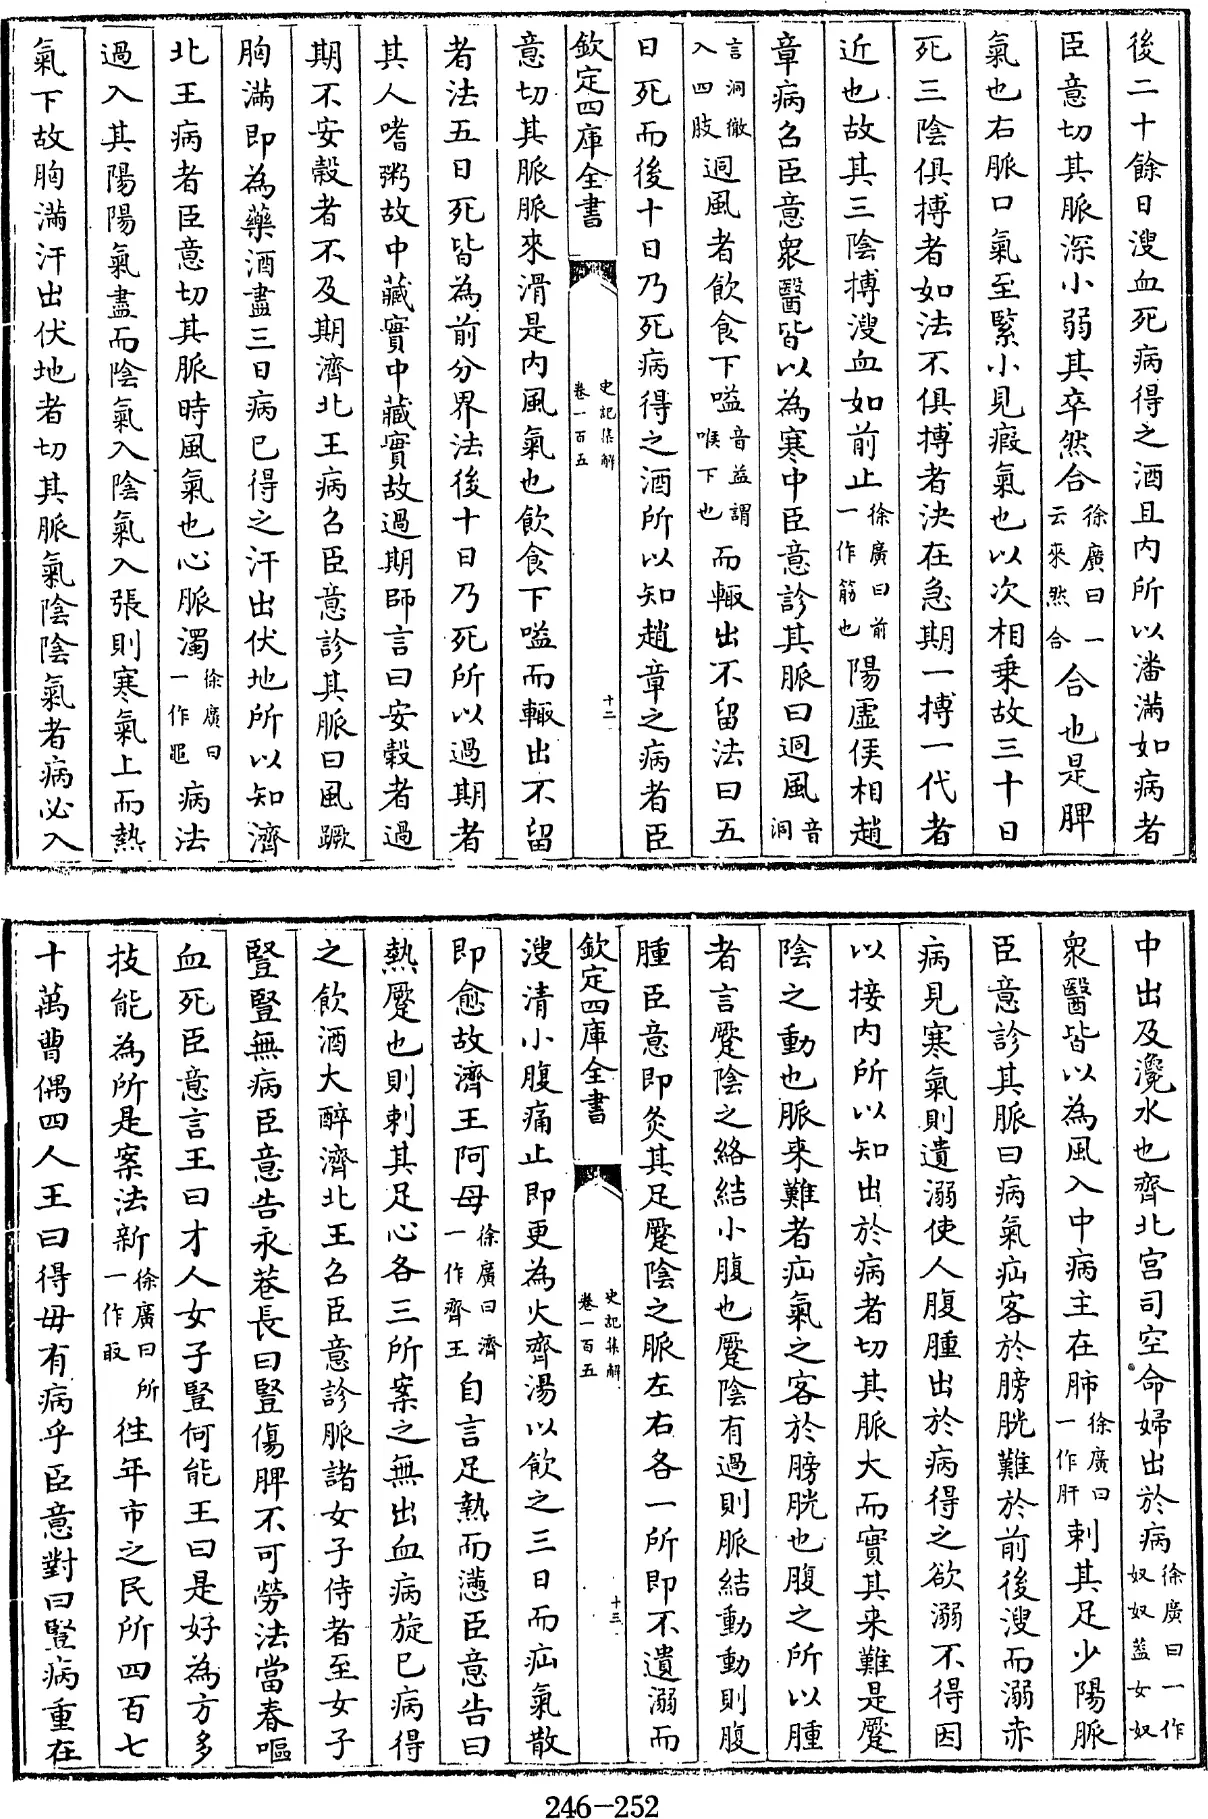 後二十餘日溲血死病得之酒且内所以潘滿如病者
臣意切其脈深小弱其卒然合徐廣曰一云來然合合也是脾
氣也右脈口氣至緊小見瘕氣也以次相乗故三十日
死三陰俱搏者如法不俱搏者決在急期一搏一代者
近也故其三陰搏溲血如前止徐廣曰前一作筋也陽虚侯相趙
章病召臣意衆醫皆以為寒中臣意診其脈曰迵風音洞
言洞徹入四肢迵風者飲食下嗌音益謂喉下也而輙出不留法曰五
日死而後十日乃死病得之酒所以知趙章之病者臣
欽定四庫全書
史記集解
卷一百五
十二
意切其脈脈來滑是内風氣也飲食下嗌而輙出不留
者法五日死皆為前分界法後十日乃死所以過期者
其人嗜粥故中藏實中藏實故過期師言曰安榖者過
期不安榖者不及期濟北王病召臣意診其脈曰風蹶
胸滿即為藥酒盡三日病已得之汗出伏地所以知濟
北王病者臣意切其脈時風氣也心脈濁徐廣曰一作黽病法
過入其陽陽氣盡而陰氣入陰氣入張則寒氣上而熱
氣下故胸滿汗出伏地者切其脈氣陰陰氣者病必入
中出及瀺水也齊北宫司空命婦出於病徐廣曰一作奴奴蓋女奴
衆醫皆以為風入中病主在肺徐廣曰一作肝刺其足少陽脈
臣意診其脈曰病氣疝客於膀胱難於前後溲而溺赤
病見寒氣則遺溺使人腹腫出於病得之欲溺不得因
以接内所以知出於病者切其脈大而實其来難是蹷
陰之動也脈来難者疝氣之客於膀胱也腹之所以腫
者言蹷陰之絡結小腹也蹷陰有過則脈結動動則腹
腫臣意即灸其足蹷陰之脈左右各一所即不遺溺而
欽定四庫全書
史記集解
卷一百五
十三
溲清小腹痛止即更為火齊湯以飲之三日而疝氣散
即愈故濟王阿母徐廣曰濟一作齊王自言足熱而懣臣意告曰
熱蹷也則刺其足心各三所案之無出血病旋已病得
之飲酒大醉濟北王召臣意診脈諸女子侍者至女子
豎豎無病臣意告永巷長曰豎傷脾不可勞法當春嘔
血死臣意言王曰才人女子豎何能王曰是好為方多
技能為所是案法新徐廣曰所一作取往年市之民所四百七
十萬曹偶四人王曰得毋有病乎臣意對曰豎病重在
246-252